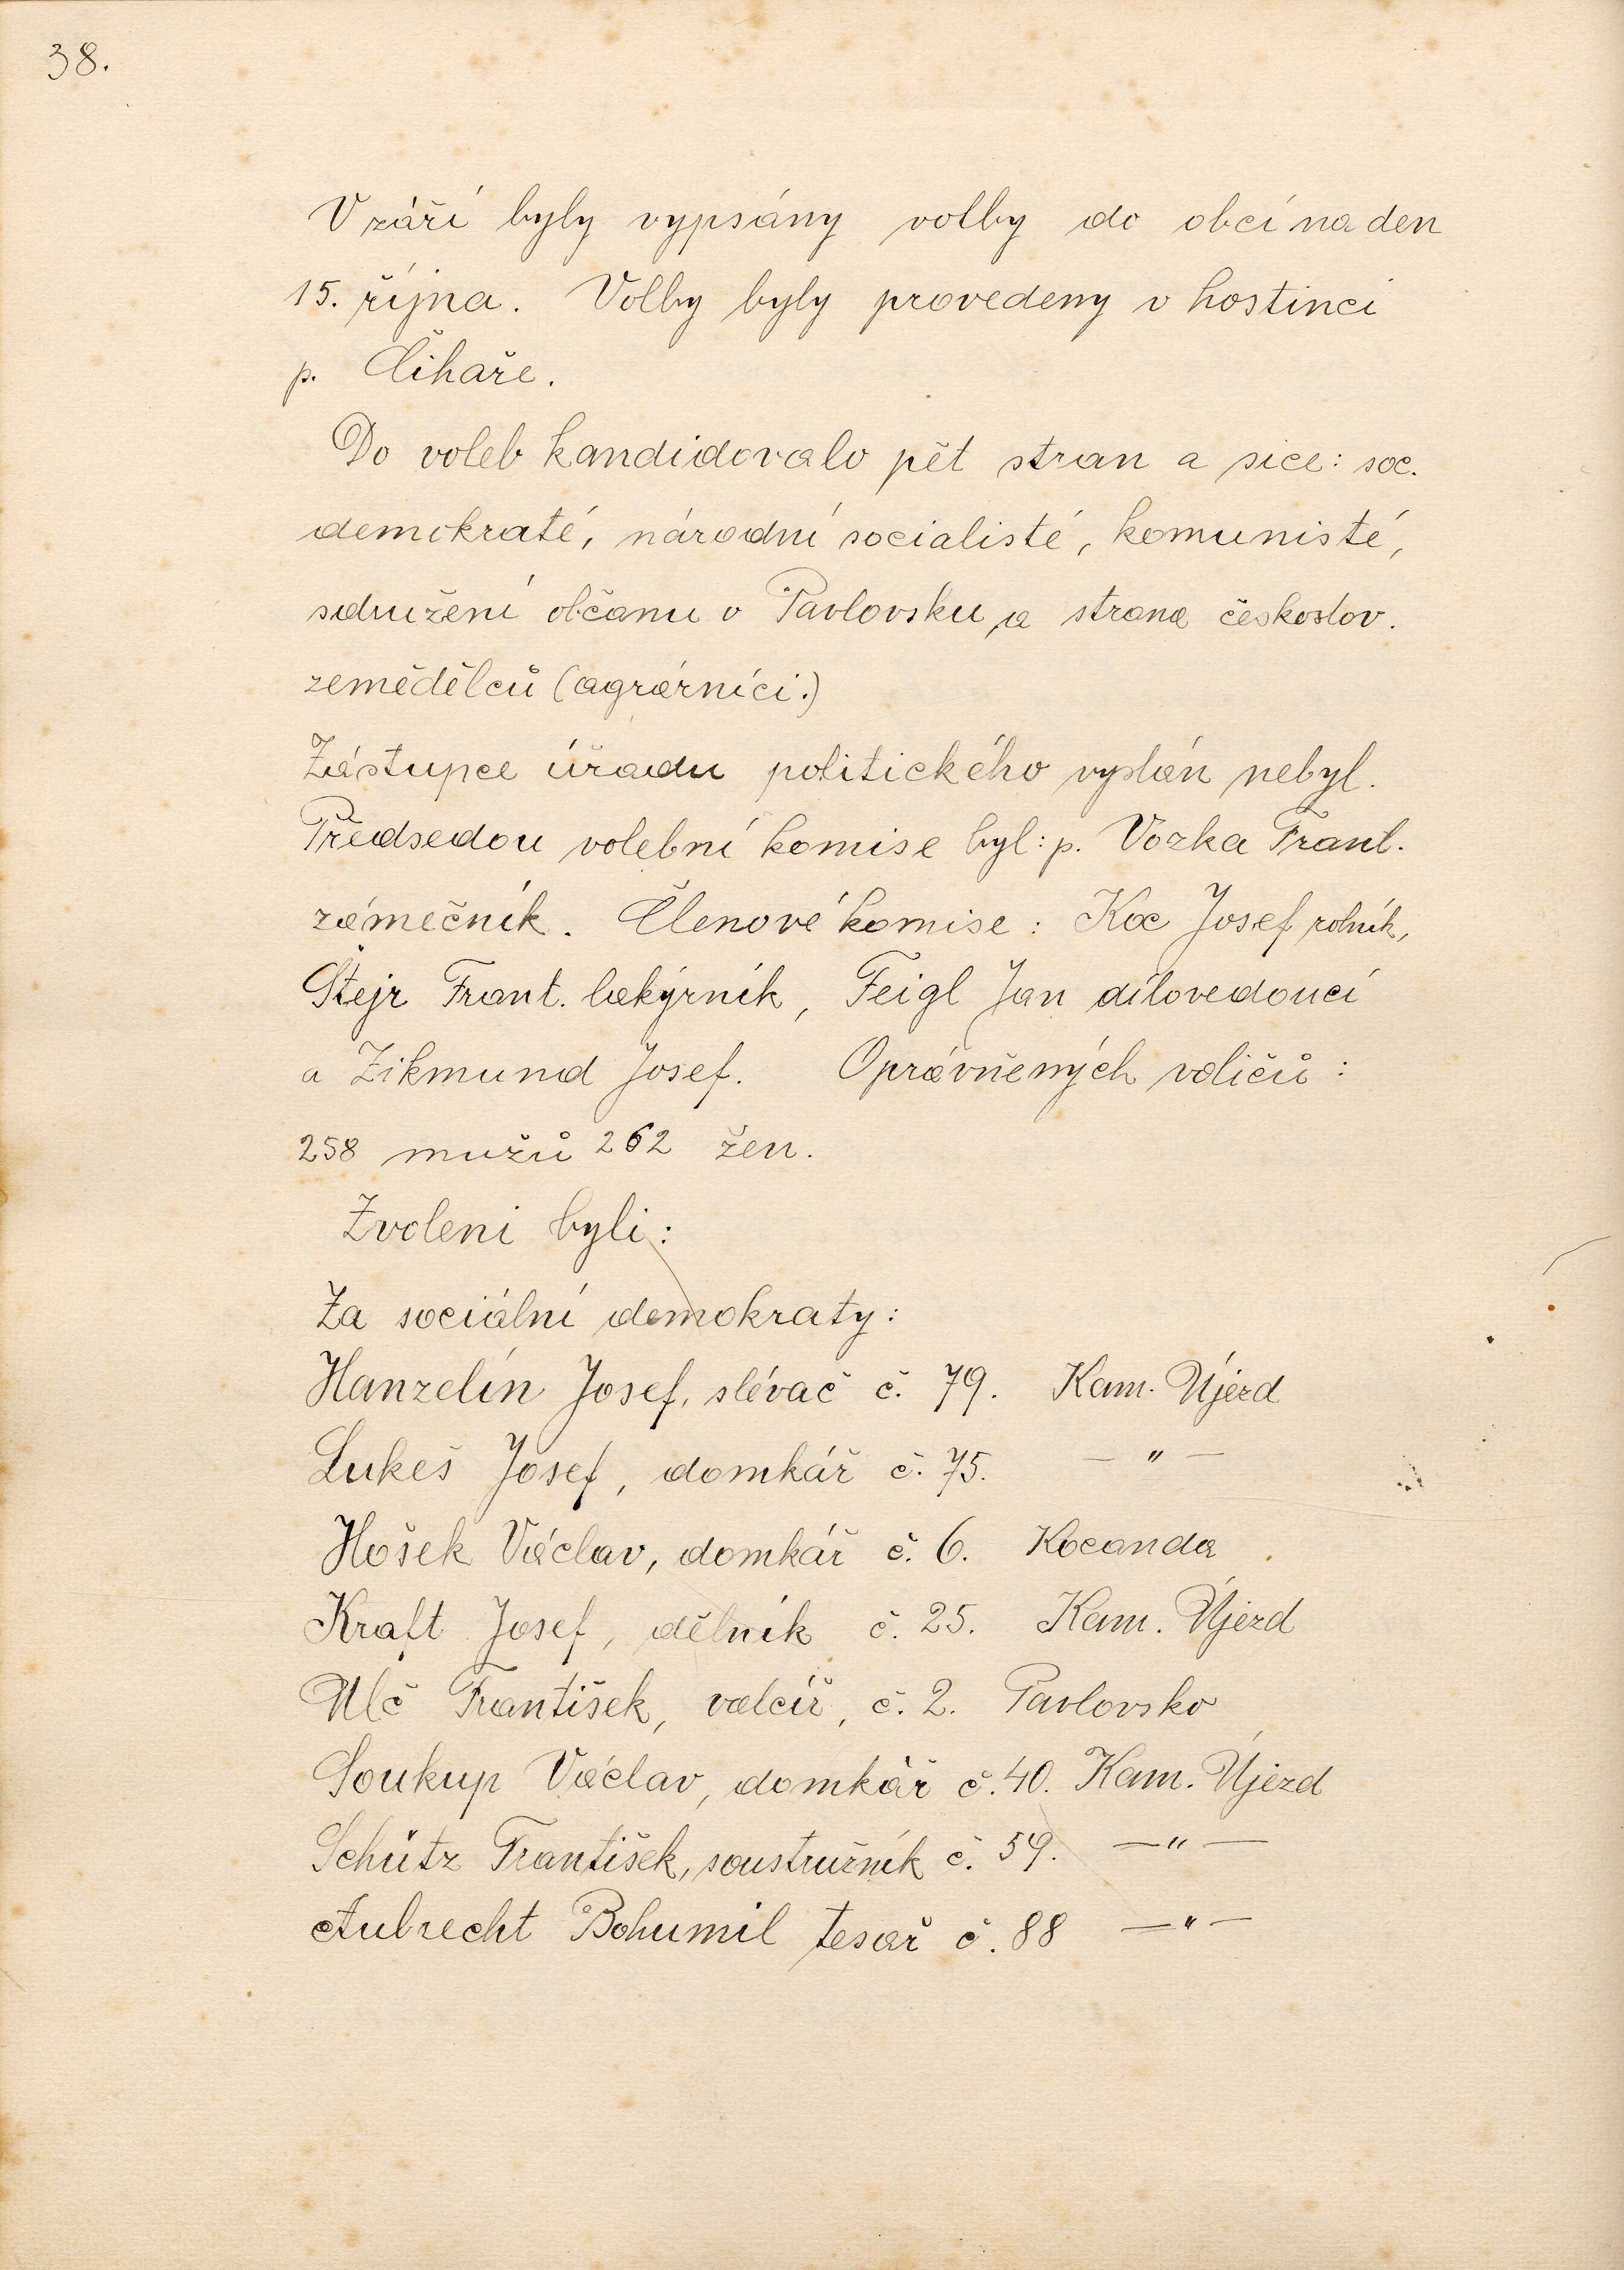 38.
V září byly vypsány volby do obcí na den
15. října. Volby byly provedeny v hostinci
p. Čihaře.
Do voleb kandidovalo pět stran a sice: soc.
demokraté, národní socialisté, komunisté,
sdružení občanu v Pavlovsku a strana českoslov.
zemědělců (agrárníci.)
Zástupce úřadu politického vyslán nebyl.
Předsedou volební komise byl: p. Vozka Frant.
zámečník. Členové komise: Koc Josef rolník,
Štejr Frant. lakýrník, Feigl Jan dílovedoucí
a Zikmund Josef. Oprávněných voličů:
258 mužů 262 žen.
Zvoleni byli:
Za sociální demokraty:
Hanzelín Josef, slévač č. 79. Kam. Újezd
Lukeš Josef, domkář č. 75. — " —
Hošek Václav, domkář č. 6. Kocanda
Kraft Josef, dělník č. 25. Kam. Újezd
Ulč František, valcíř, č. 2. Pavlovsko
Soukup Václav, domkář č. 40. Kam. Újezd
Schütz František, soustružník č. 59. — " —
Aubrecht Bohumil tesař č. 88 — " —